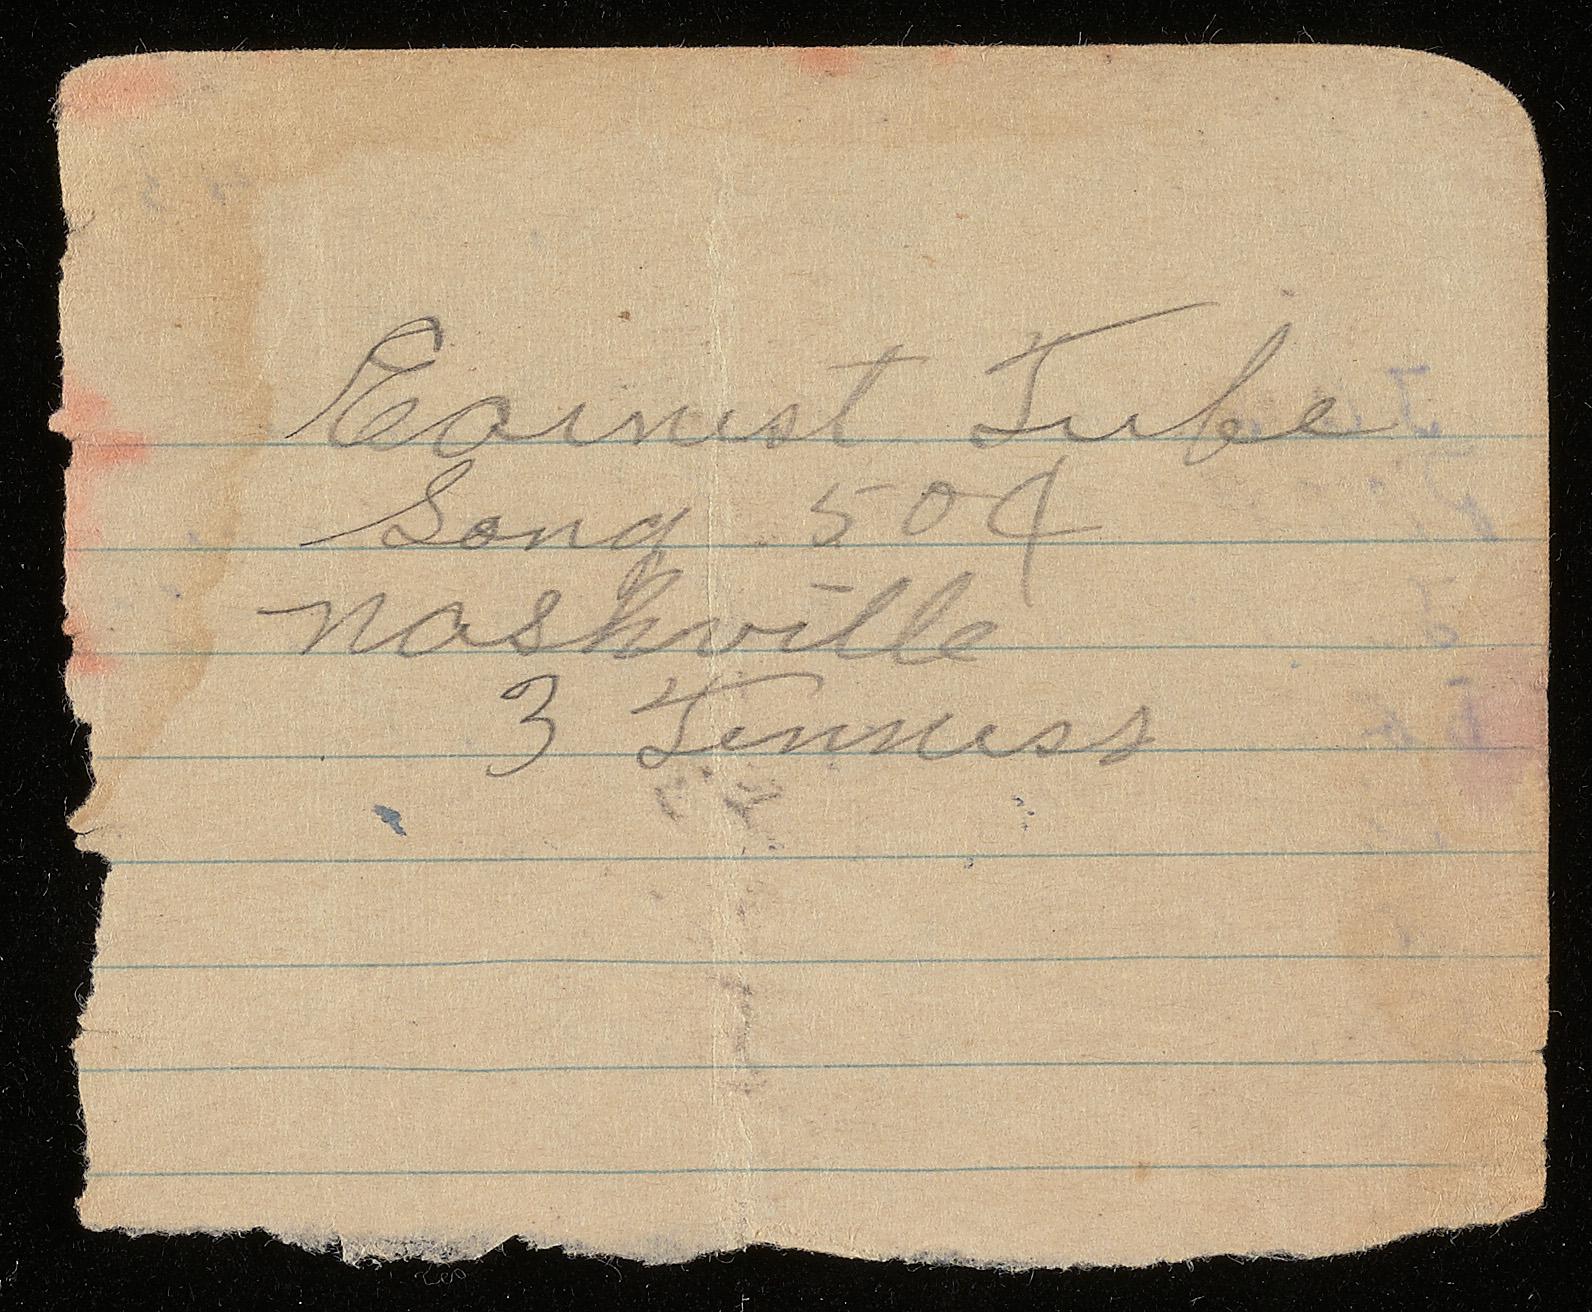 Earnest Tube
Song 50¢
Nashville
3 Tenness